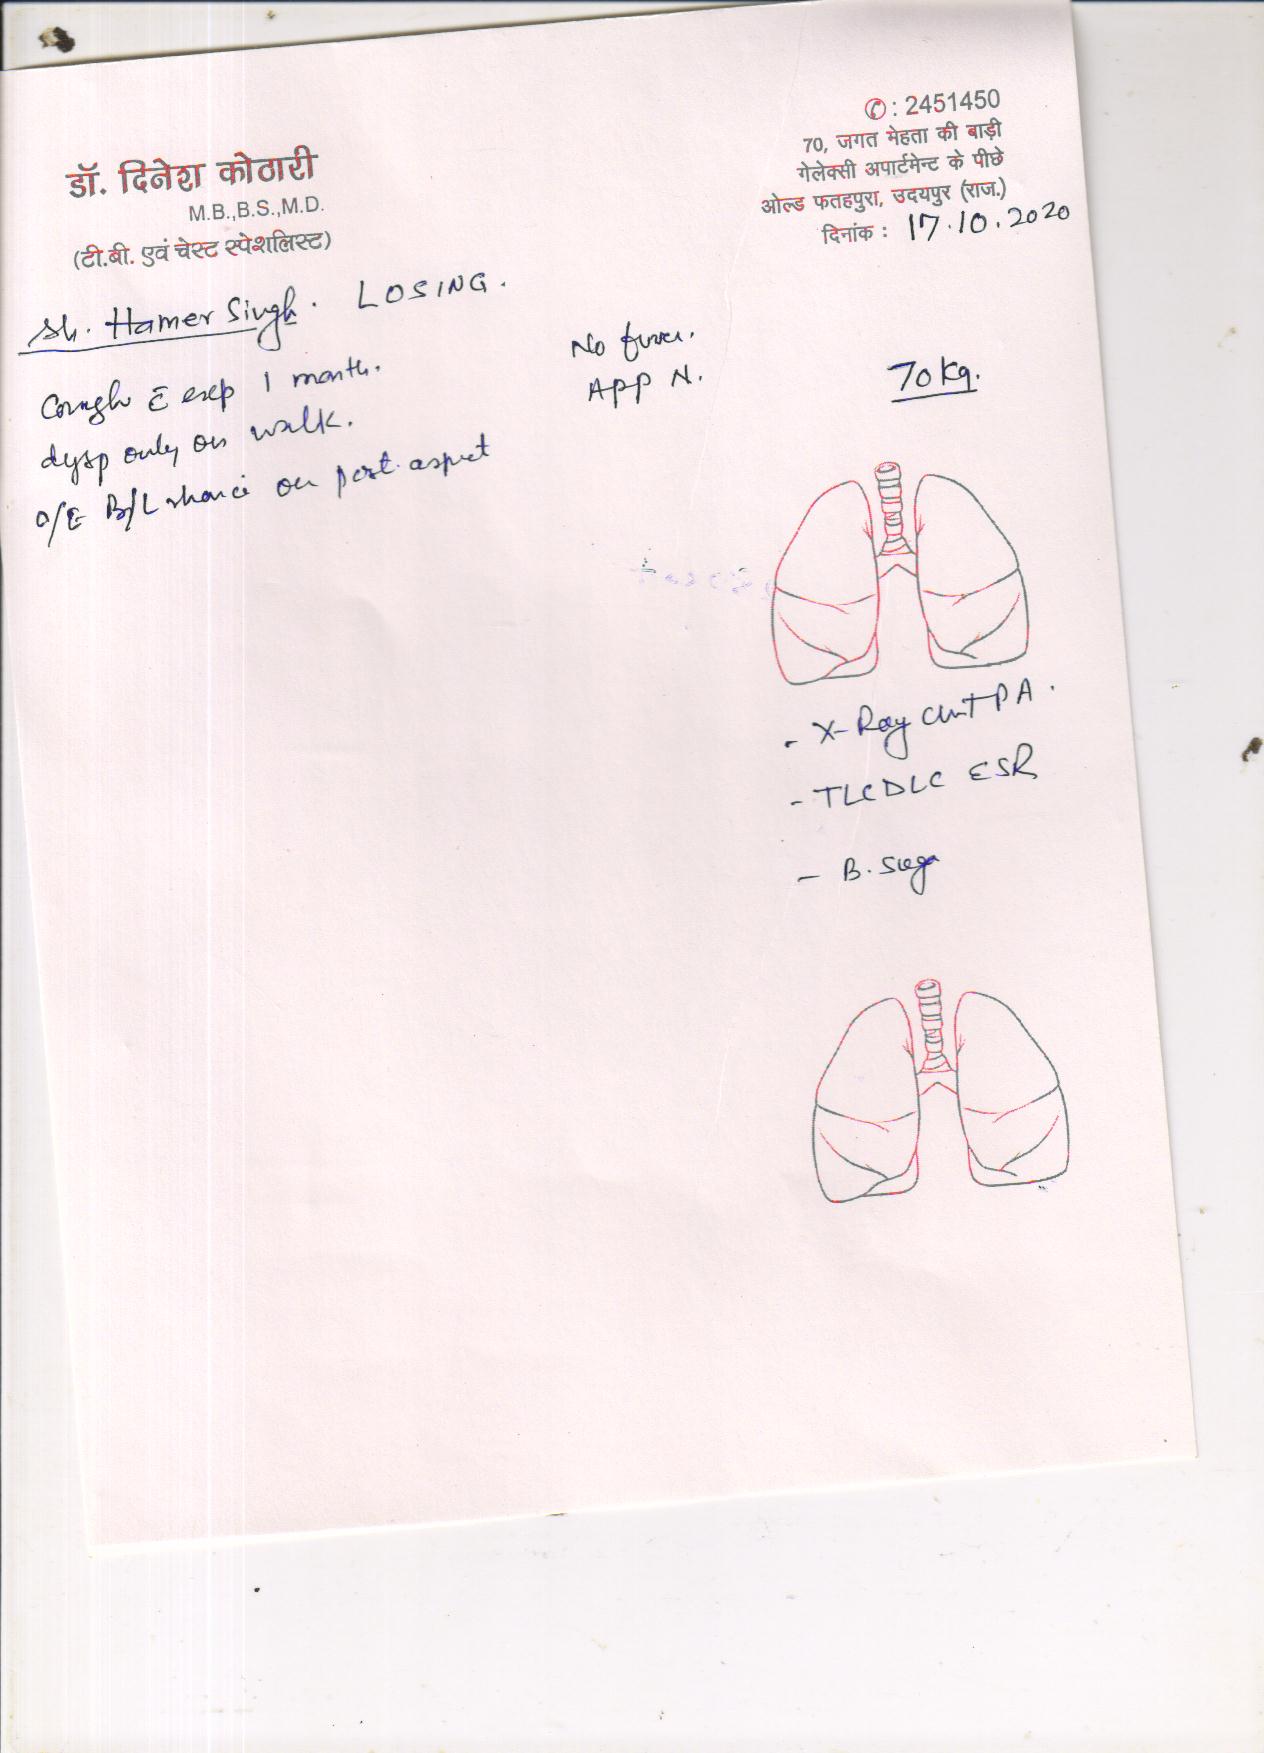 डॉ. दिनेश कोठारी
M.B.,B.S.,M.D.
(टी.बी. एवं चेस्ट स्पेशलिस्ट)
✆: 2451450
70, जगत मेहता की बाड़ी
गेलेक्सी अपार्टमेन्ट के पीछे
ओल्ड फतहपुरा, उदयपुर (राज.)
दिनांक : 17.10.2020
Sh. Hamer Singh. LOSING.
Cough c̄ exp 1 month.
dysp only on walk.
O/E B/L on post. aspect
No fever.
APP N.
70 Kg.
- X-Ray Chest PA.
- TLC DLC ESR
- B. Suga